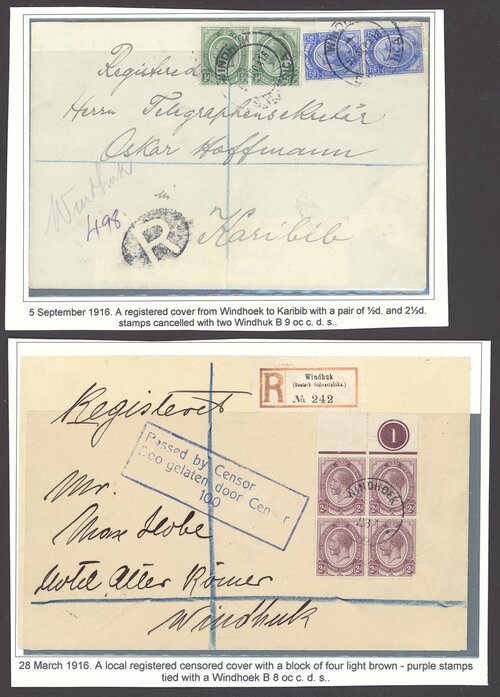 Registered
Herrn Telegraphensekretär
Oskar Hoffmann
in
Karibib
Windhuk
498
R
5 September 1916. A registered cover from Windhoek to Karibib with a pair of ½d. and 2½d.
stamps cancelled with two Windhuk B 9 oc c. d. s..
R
Windhuk
(Deutsch-Südwestafrika.)
No. 242
Registered
1
Passed by Censor
Doo gelaten door Censor
100
WINDHOEK
Mr.
Max Hobe
Hotel Alter Römer
Windhuk
28 March 1916. A local registered censored cover with a block of four light brown - purple stamps
tied with a Windhoek B 8 oc c. d. s..